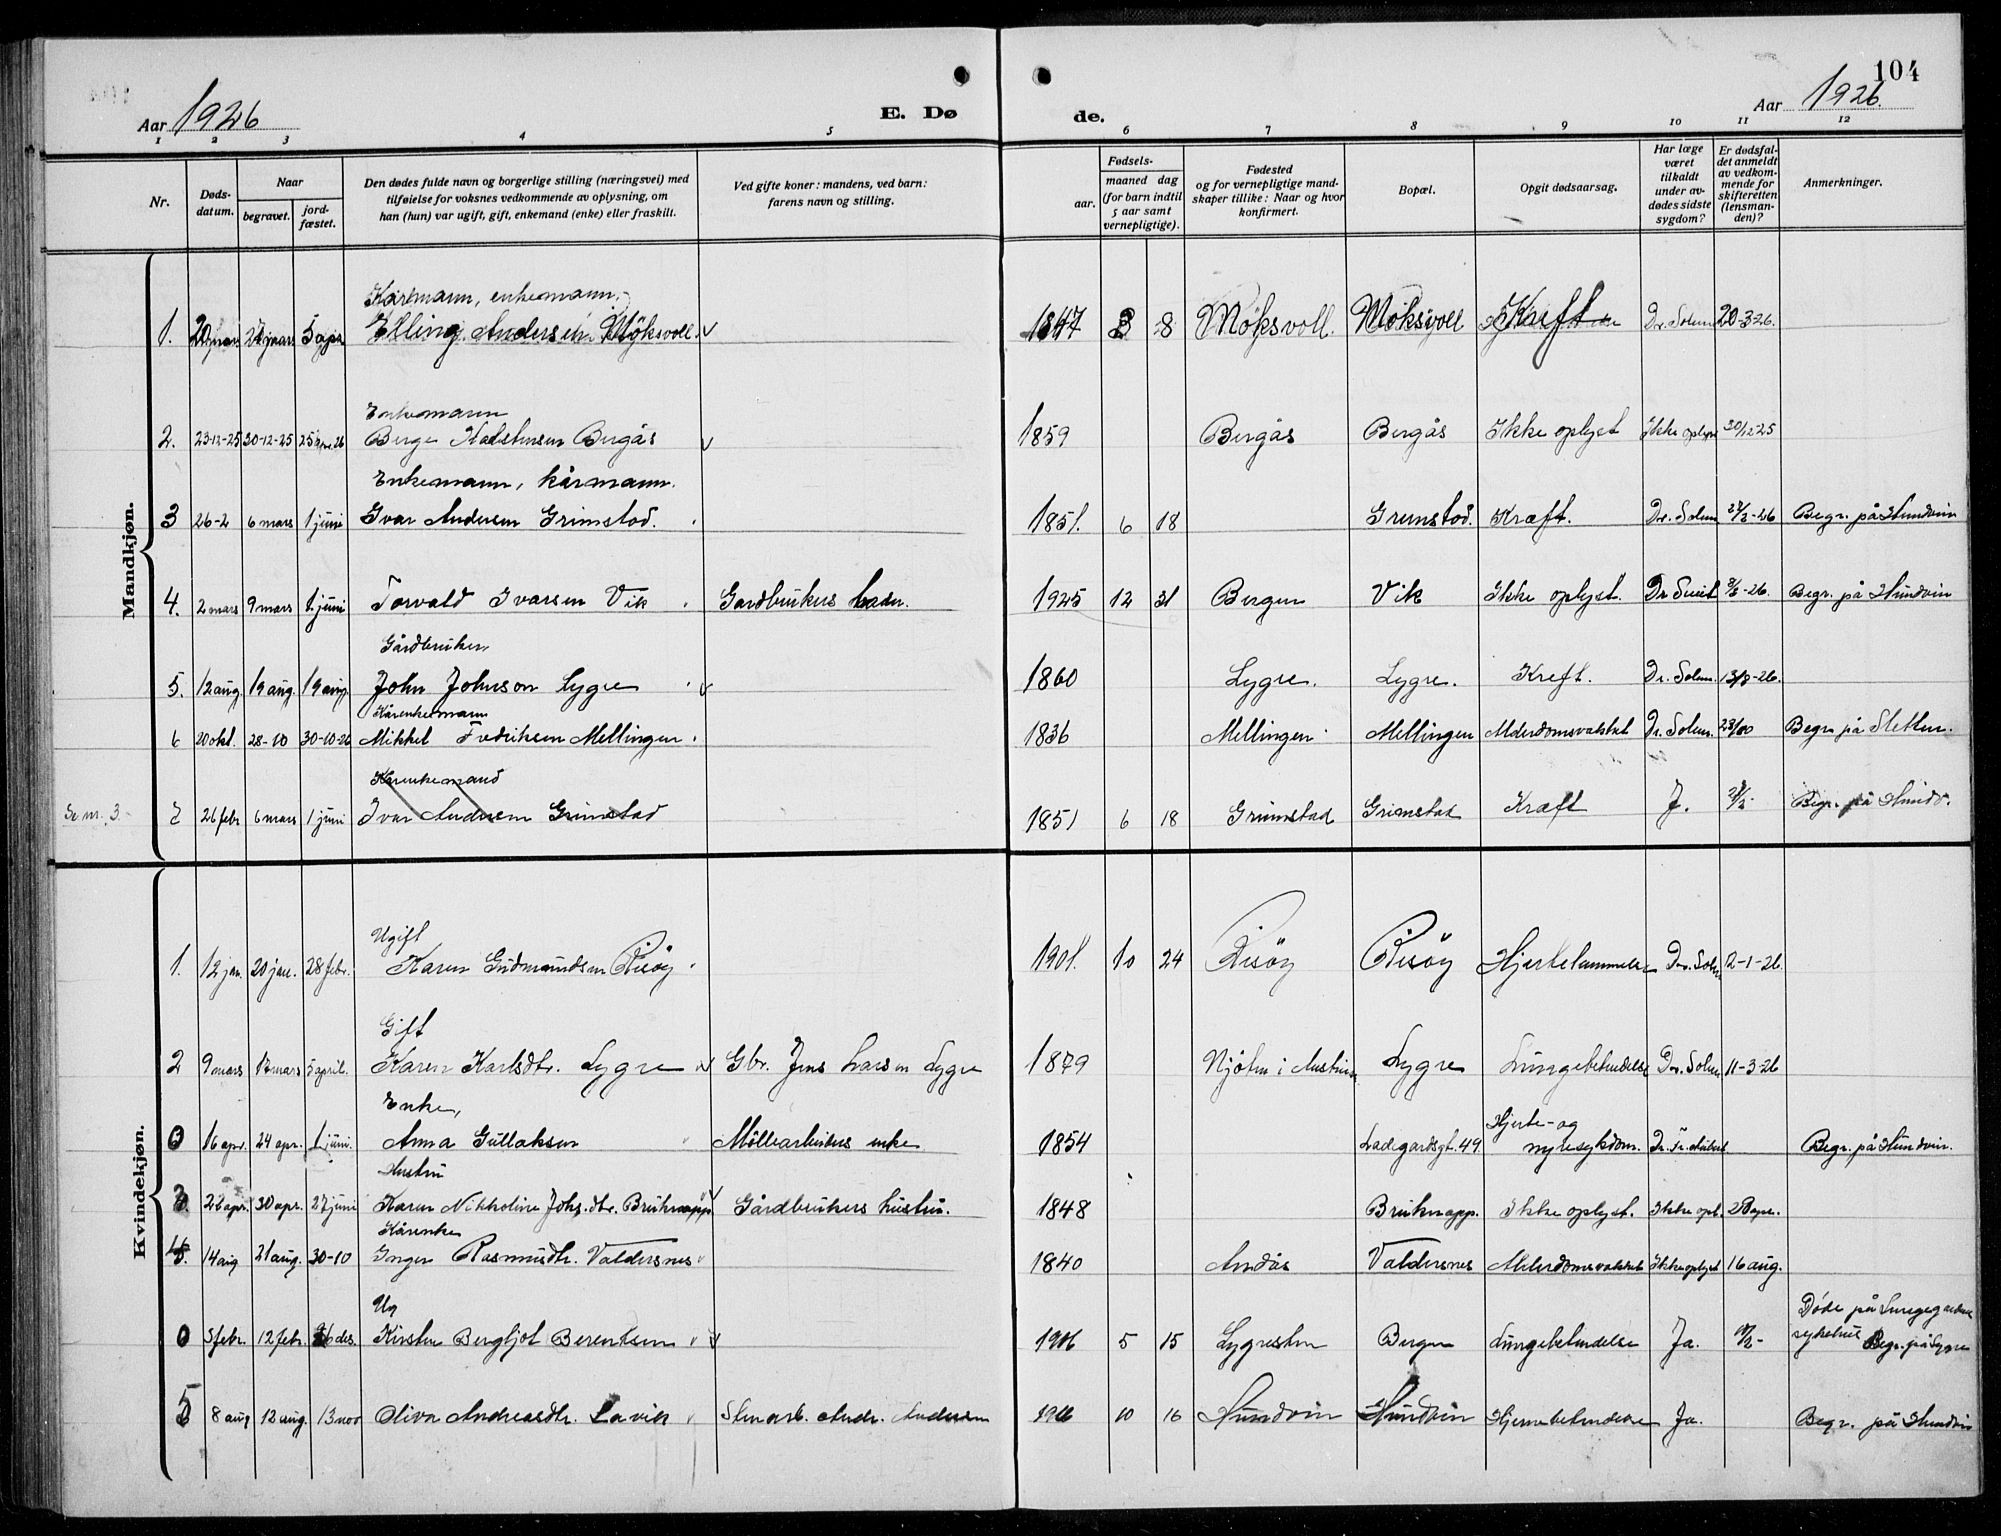 104
Aar 1926 E. Dø de. Aar 1926.
1 2 3 4 5 6 7 8 9 10 11 12
Nr.
Døds-
datum.
Naar
begravet.
jord-
fæstet.
Den dødes fulde navn og borgerlige stilling (næringsvei) med
tilføielse for voksnes vedkommende av oplysning, om
han (hun) var ugift, gift, enkemand (enke) eller fraskilt.
Ved gifte koner: mandens, ved barn:
farens navn og stilling.
Fødsels-
aar.
maaned dag
(for barn indtil
5 aar samt
vernepligtige).
Fødested
og for vernepligtige mand-
skaper tillike: Naar og hvor
konfirmert.
Bopæl.
Opgit dødsaarsag.
Har læge
været
tilkaldt
under av-
dødes sidste
sygdom?
Er dødsfal-
det anmeldt
av vedkom-
mende for
skifteretten
(lensman-
den)?
Anmerkninger.
Mandkjøn.
Kårmann, enkemann,
1. 5 apr. Elling Andersen Møksvoll. 1847 3 8 Møksvoll. Møksvoll Kræft Dr. Solem 20-3-26.
Enkemann
2. 23-12-25 30-12-25 25 Berge Bergås 1859 Bergås Bergås Ikke oplyst Ikke oplyst 30/12 25
Enkemann, kårmann.
3 26-2 6 mars 1 juni Ivar Andersen Grimstad. 1851. 6 18 Grimstad. Kræft. Dr. Solem 27/2-26 Begr. på Hundvin
4. 2 mars 9 mars 1 juni Torvald Ivarsen Vik Gardbrukers 1925 12 31 Bergen Vik Ikke oplyst. Dr -26. Begr. på Hundvin
Gårdbruker
5. 12 aug. 19 aug. 19 aug. John Johnson Lygre 1860 Lygre. Lygre. Kreft. Dr. Solem. 13/8-26.
Kårenkemann
6 20 okt. 28-10 30-10-26 Mikkel Fredriksen Mellingen. 1836 Mellingen Mellingen Alderdomsvakhet Dr. Solem. 23/10 Begr. på Sletten.
Kårenkemand
Se nr. 3. 7 26 febr 6 mars 1 juni Ivar Andersen Grimstad 1851 6 18 Grimstad Grimstad Kræft J. Begr. på Hundv.
Kvindekjøn.
Ugift
1. 12 jan. 20 jan. 28 febr. Karen Gudmundsen Risöy 1901. 10 24 Risöy Risöy Hjertelammelse Dr. Solem 12-1-26.
Gift
2 9 mars mars 5 april. Karen Karlsdtr. Lygre Gbr. Jens Larsen Lygre 1879 i Lygre Lungebetendelse Dr. Solem 11-3-26
Enke,
0 16 apr. 24 apr. 1 juni. Anna Gullaksen enke 1854 Ladegårdsgt. 49 Hjerte- og
nyresykdom. Begr. på Hundvin.
Hustru
3. 26 apr. 30 apr. 27 juni Karen Nikkoline Johs.dtr. Bruknapp Gårdbrukers hustru. 1848 Bruknapp. Ikke oplyst. Ikke opl. 28 apr.
Kårenke
4. 14 aug 21 aug. 30-10 Inger Rasmusdtr. Valdersnes 1840 Andås Valdersnes Alderdomsvakhet Ikke oplyst 16 aug.
Ug
0 5 febr. 12 febr. des. Kirsten Bergljot Berentsen 1906 5 15 Bergen Lungebetendelse Ja. Døde på
sykehus Begr. på Lygre
5 8 aug 12 aug. 13 nov Oliva Andreasdtr. Lavik Andr. Andersen 10 16 Hundvin Hundvin Hjernebetendelse Ja. Begr. på Hundvin